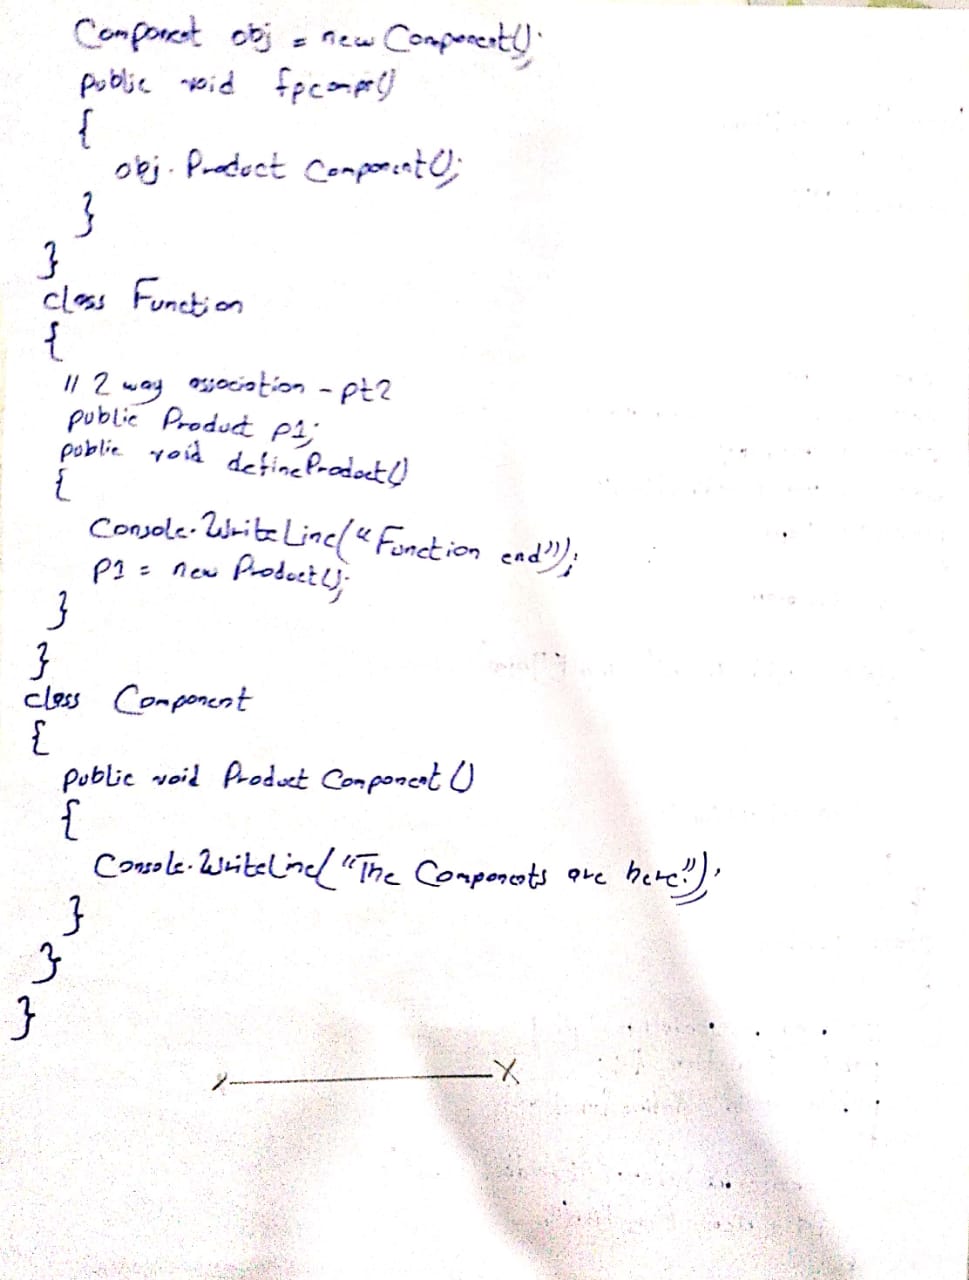 Component obj = new Component();
public void fpcomp()
{
obj.Product Component();
}
}
class Function
{
// 2 way association - pt2
public Product p1;
public void defineProduct()
{
Console.WriteLine("Function end");
p1 = new Product();
}
}
class Component
{
public void Product Component()
{
Console.WriteLine("The Components are here!");
}
}
}
x x